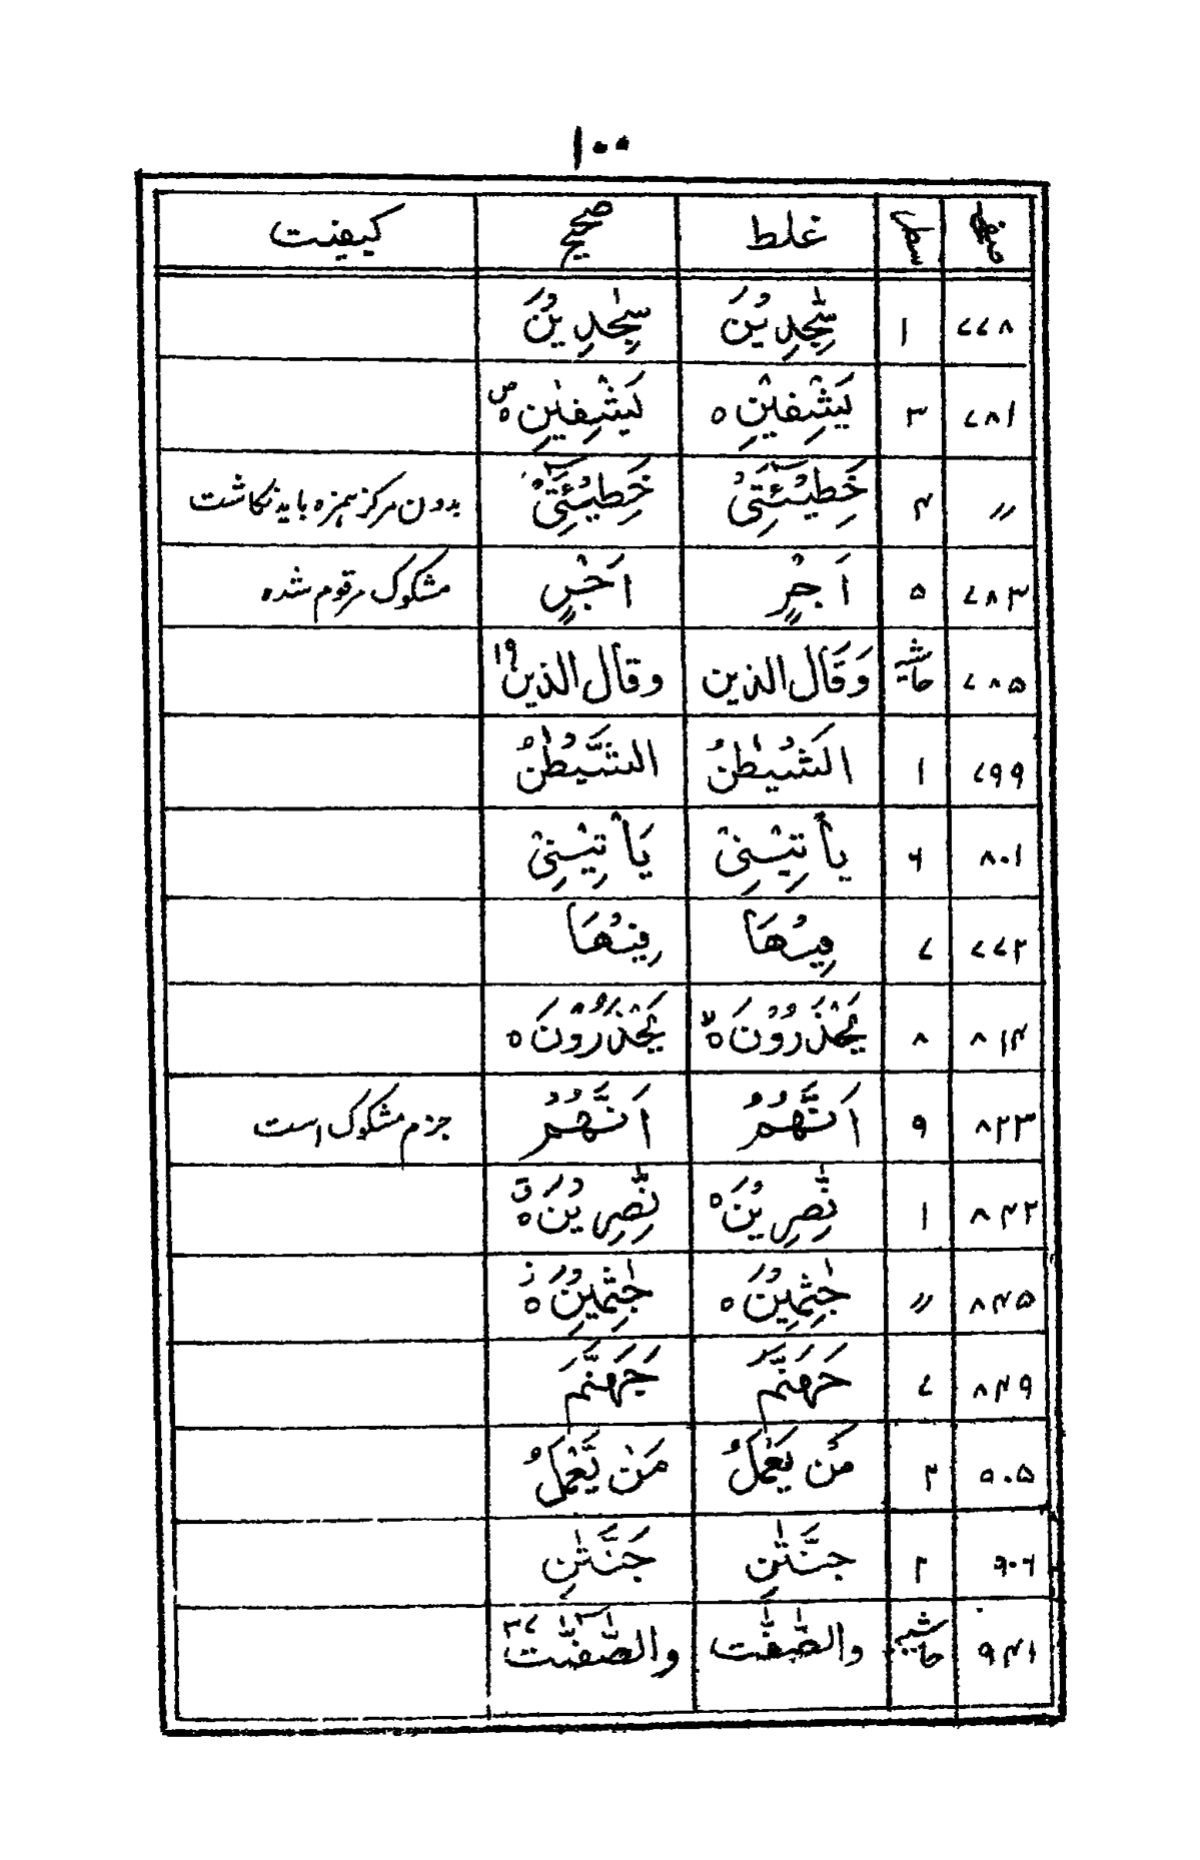 ۱۰۰
صفحہ سطر غلط صحیح کیفیت
۷۷۸ ۱ سٰجِدِیْنَ سٰجِدِیْنَ
۷۸۱ ۳ یَشْفِیْنِ ہ یَشْفِیْنِ ہ ص
〃 ۴ خَطِیْـَٔـتِیْ خَطِیْٓئَتِیْ بدون مرکز ہمزہ باید نگاشت
۷۸۳ ۵ اَجْرٍ اَجْرٍ مشکوک مرقوم شدہ
۷۸۵ حاشیہ وَقَالَ الذین وقال الذین ۱۹
۷۹۹ ۱ الَشیْطٰنُ الشَّیْطٰنُ
۸۰۱ ۶ یاْتِیْنِیْ یَاْتِیْنِیْ
۷۷۲ ۷ فِیْهَا فِیْهَا
۸۱۴ ۸ یَحْذَرُوْنَ ہ لا یَحْذَرُوْنَ ہ
۸۲۳ ۹ اَنَّهُمْ اَنَّهُمْ جزم مشکوک است
۸۴۲ ۱ نّٰصِرِیْنَ ہ نّٰصِرِیْنَ ہ ق
۸۴۵ 〃 جٰثِمِیْنَ ہ جٰثِمِیْنَ ہ ز
۸۴۹ ۷ حَهَنَّمَ جَهَنَّمَ
۵۰۵ ۲ مَن یَعْمَلُ مَنْ یَّعْمَلُ
۹۰۶ ۲ جنَّتٰنِ جَنَّتٰنِ
۹۴۱ حاشیہ والصّٰٓفّٰت والصّٰٓفّٰت ۳۷